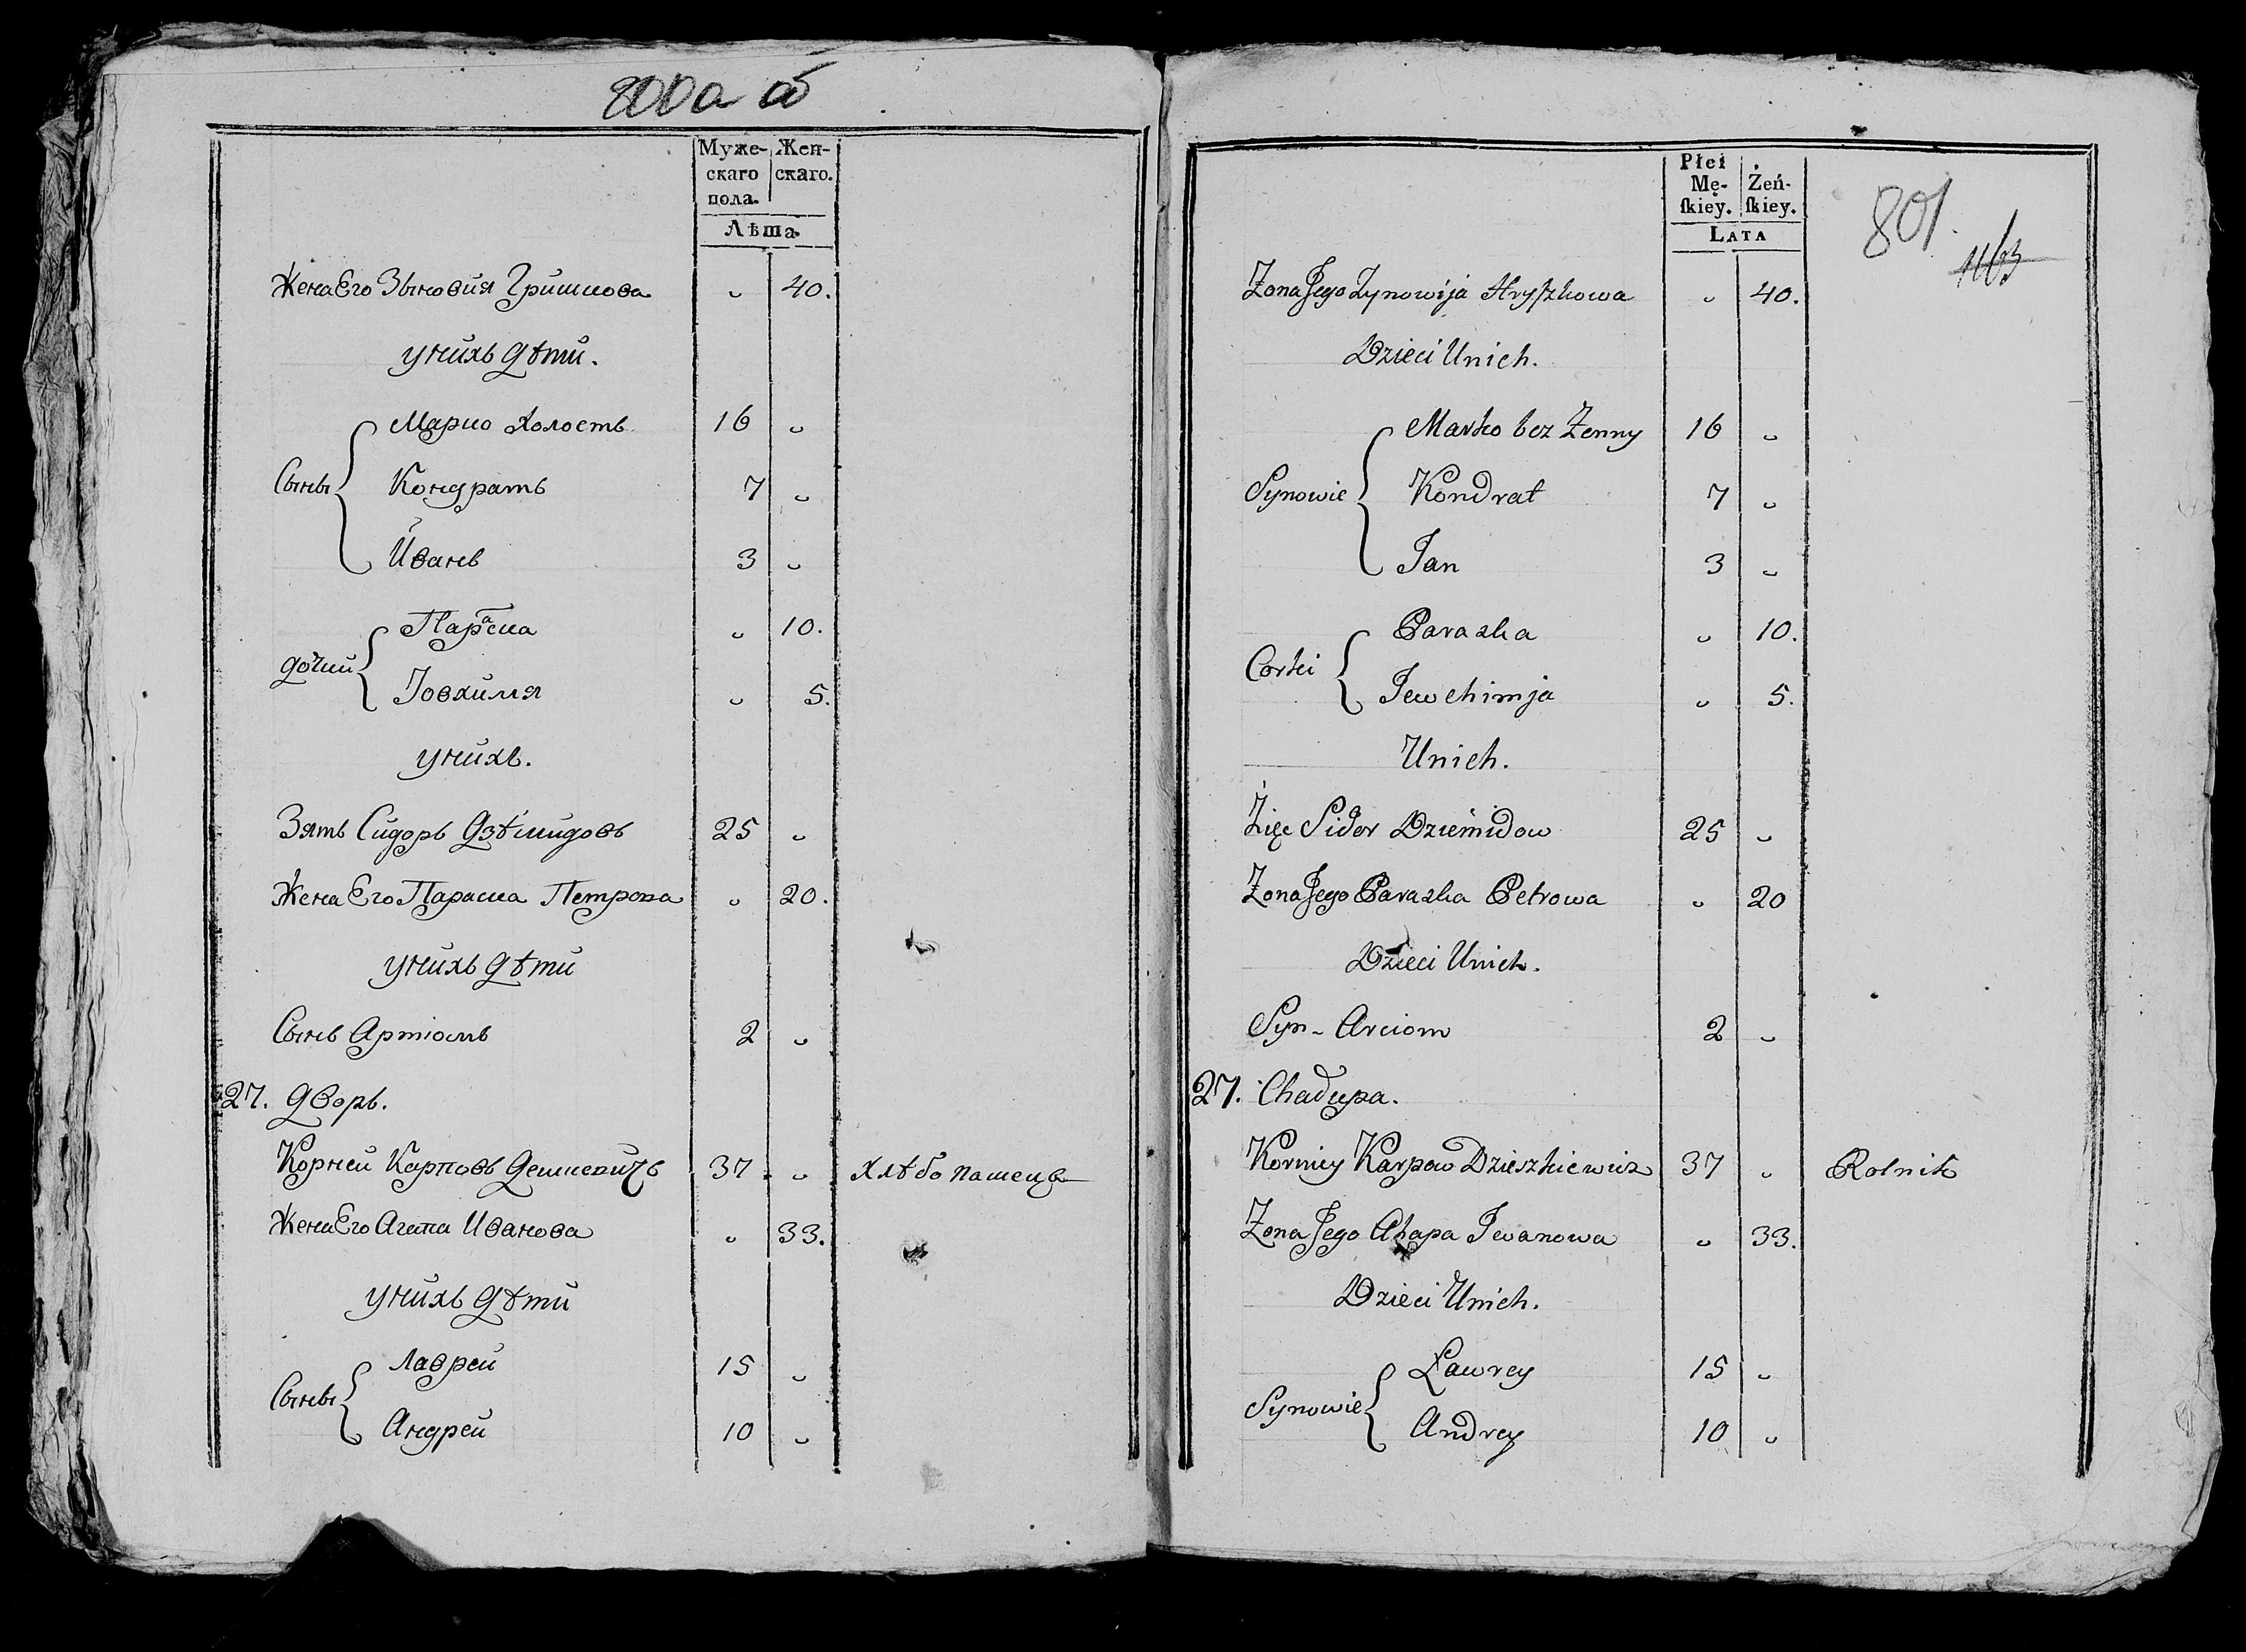 800 а об
Муже- Жен-
скаго скаго.
пола.
Лѣта
Жена Его Зыновия Гришкова „ 40.
у нихъ дѣти.
Марко холостъ 16 „
Сыны Кондратъ 7 „
Иванъ 3 „
Параска „ 10.
дочки
Іовхимя „ 5.
у нихъ.
Зять Сидоръ Дзѣмидовъ 25 „
Жена Его Параска Петрова „ 20.
у нихъ дѣти
Сынъ Артіомъ 2 „
27. дворъ.
Корней Карповъ Дешкевичъ 37 „ хлѣбопашецъ
Жена Его Агапа Иванова „ 33.
у нихъ дѣти
Лаврей 15 „
Сыны
Андрей 10 „
Płci
Mę- Żeń-
ſkiey. ſkiey.
LATA
801.
1163
Żona Jego Zynowija Hryſzkowa „ 40.
Dzieci Unich.
Marko bez Żenny 16 „
Synowie Kondrat 7 „
Jan 3 „
Paraska „ 10.
Corki
Jewchimja „ 5.
Unich.
Zięc Sidor Dziemidow 25 „
Żona Jego Paraska Petrowa „ 20
Dzieci Unich.
Syn - Arciom 2 „
27. Chałupa.
Korniey Karpow Dzieszkiewicz 37 „ Rolnik
Żona Jego Ahapa Iwanowa „ 33.
Dzieci Unich.
Ławrey 15 „
Synowie
Andrey 10 „